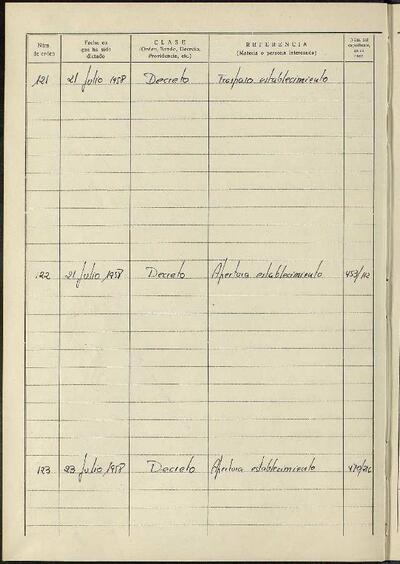 Núm. de orden
Fecha en que ha sido dictado
CLASE
(Orden, Bando, Decreto, Providencia, etc.)
REFERENCIA
(Materia o persona interesada)
Núm. del expediente, en su caso
121 21 Julio 1958 Decreto Traspaso establecimiento
122 21 Julio 1958 Decreto Apertura establecimiento
123 23 Julio 1958 Decreto Apertura establecimiento